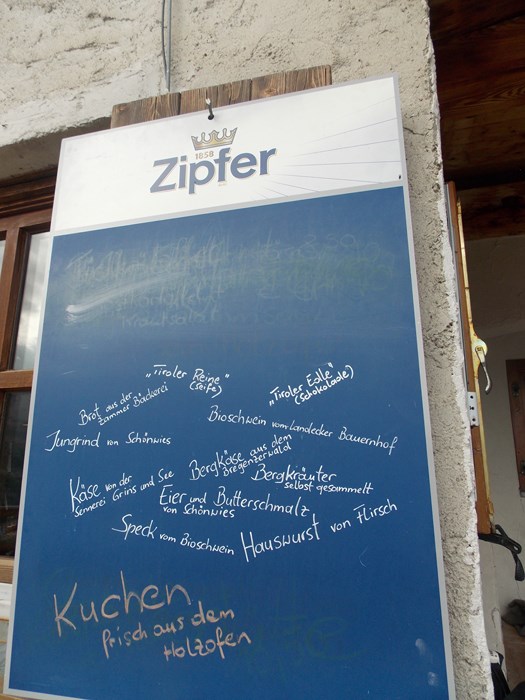 1858
Zipfer
„Tiroler Reine"
(Seife)
„Tiroler Edle"
(Schokolade)
Brot aus der
Zammer Bäckerei
Bioschwein vom Landecker Bauernhof
Jungrind von Schönwies
Bergkäse aus dem
Bregenzerwald
Käse von der
Sennerei Grins und See
Bergkräuter
selbst gesammelt
Eier und Butterschmalz
von Schönwies
Speck vom Bioschwein
Hauswurst von Flirsch
Kuchen
frisch aus dem
Holzofen